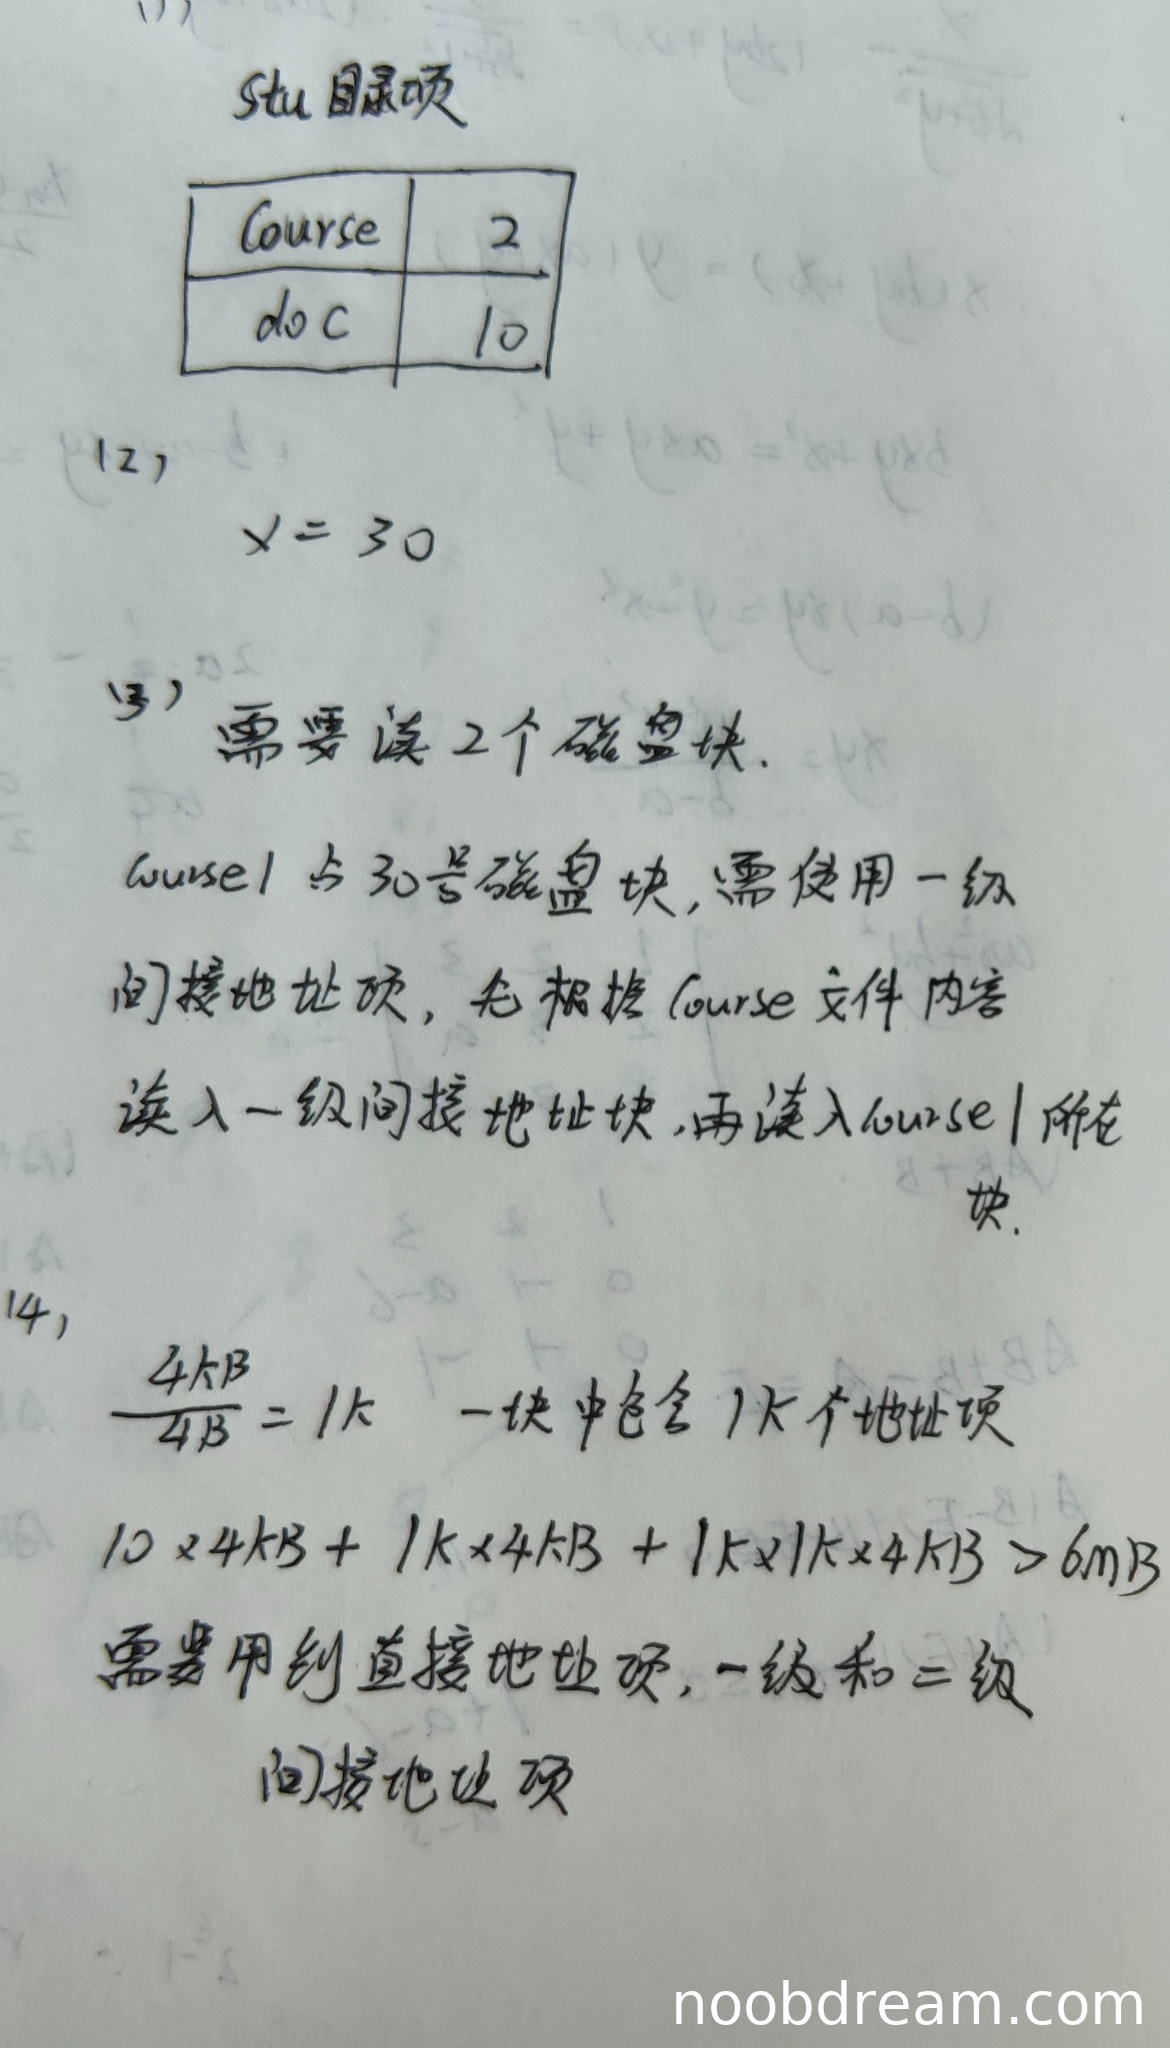 (1)
stu 目录项
Course 2
doc 10
(2)
x = 30
(3) 需要读2个磁盘块.
course1 占30号磁盘块,需使用一级
间接地址项,先根据Course文件内容
读入一级间接地址块,再读入course1所在
块.
(4)
4KB/4B = 1K 一块中包含1K个地址项
10×4KB + 1K×4KB + 1K×1K×4KB > 6MB
需要用到直接地址项,一级和二级
间接地址项
noobdream.com